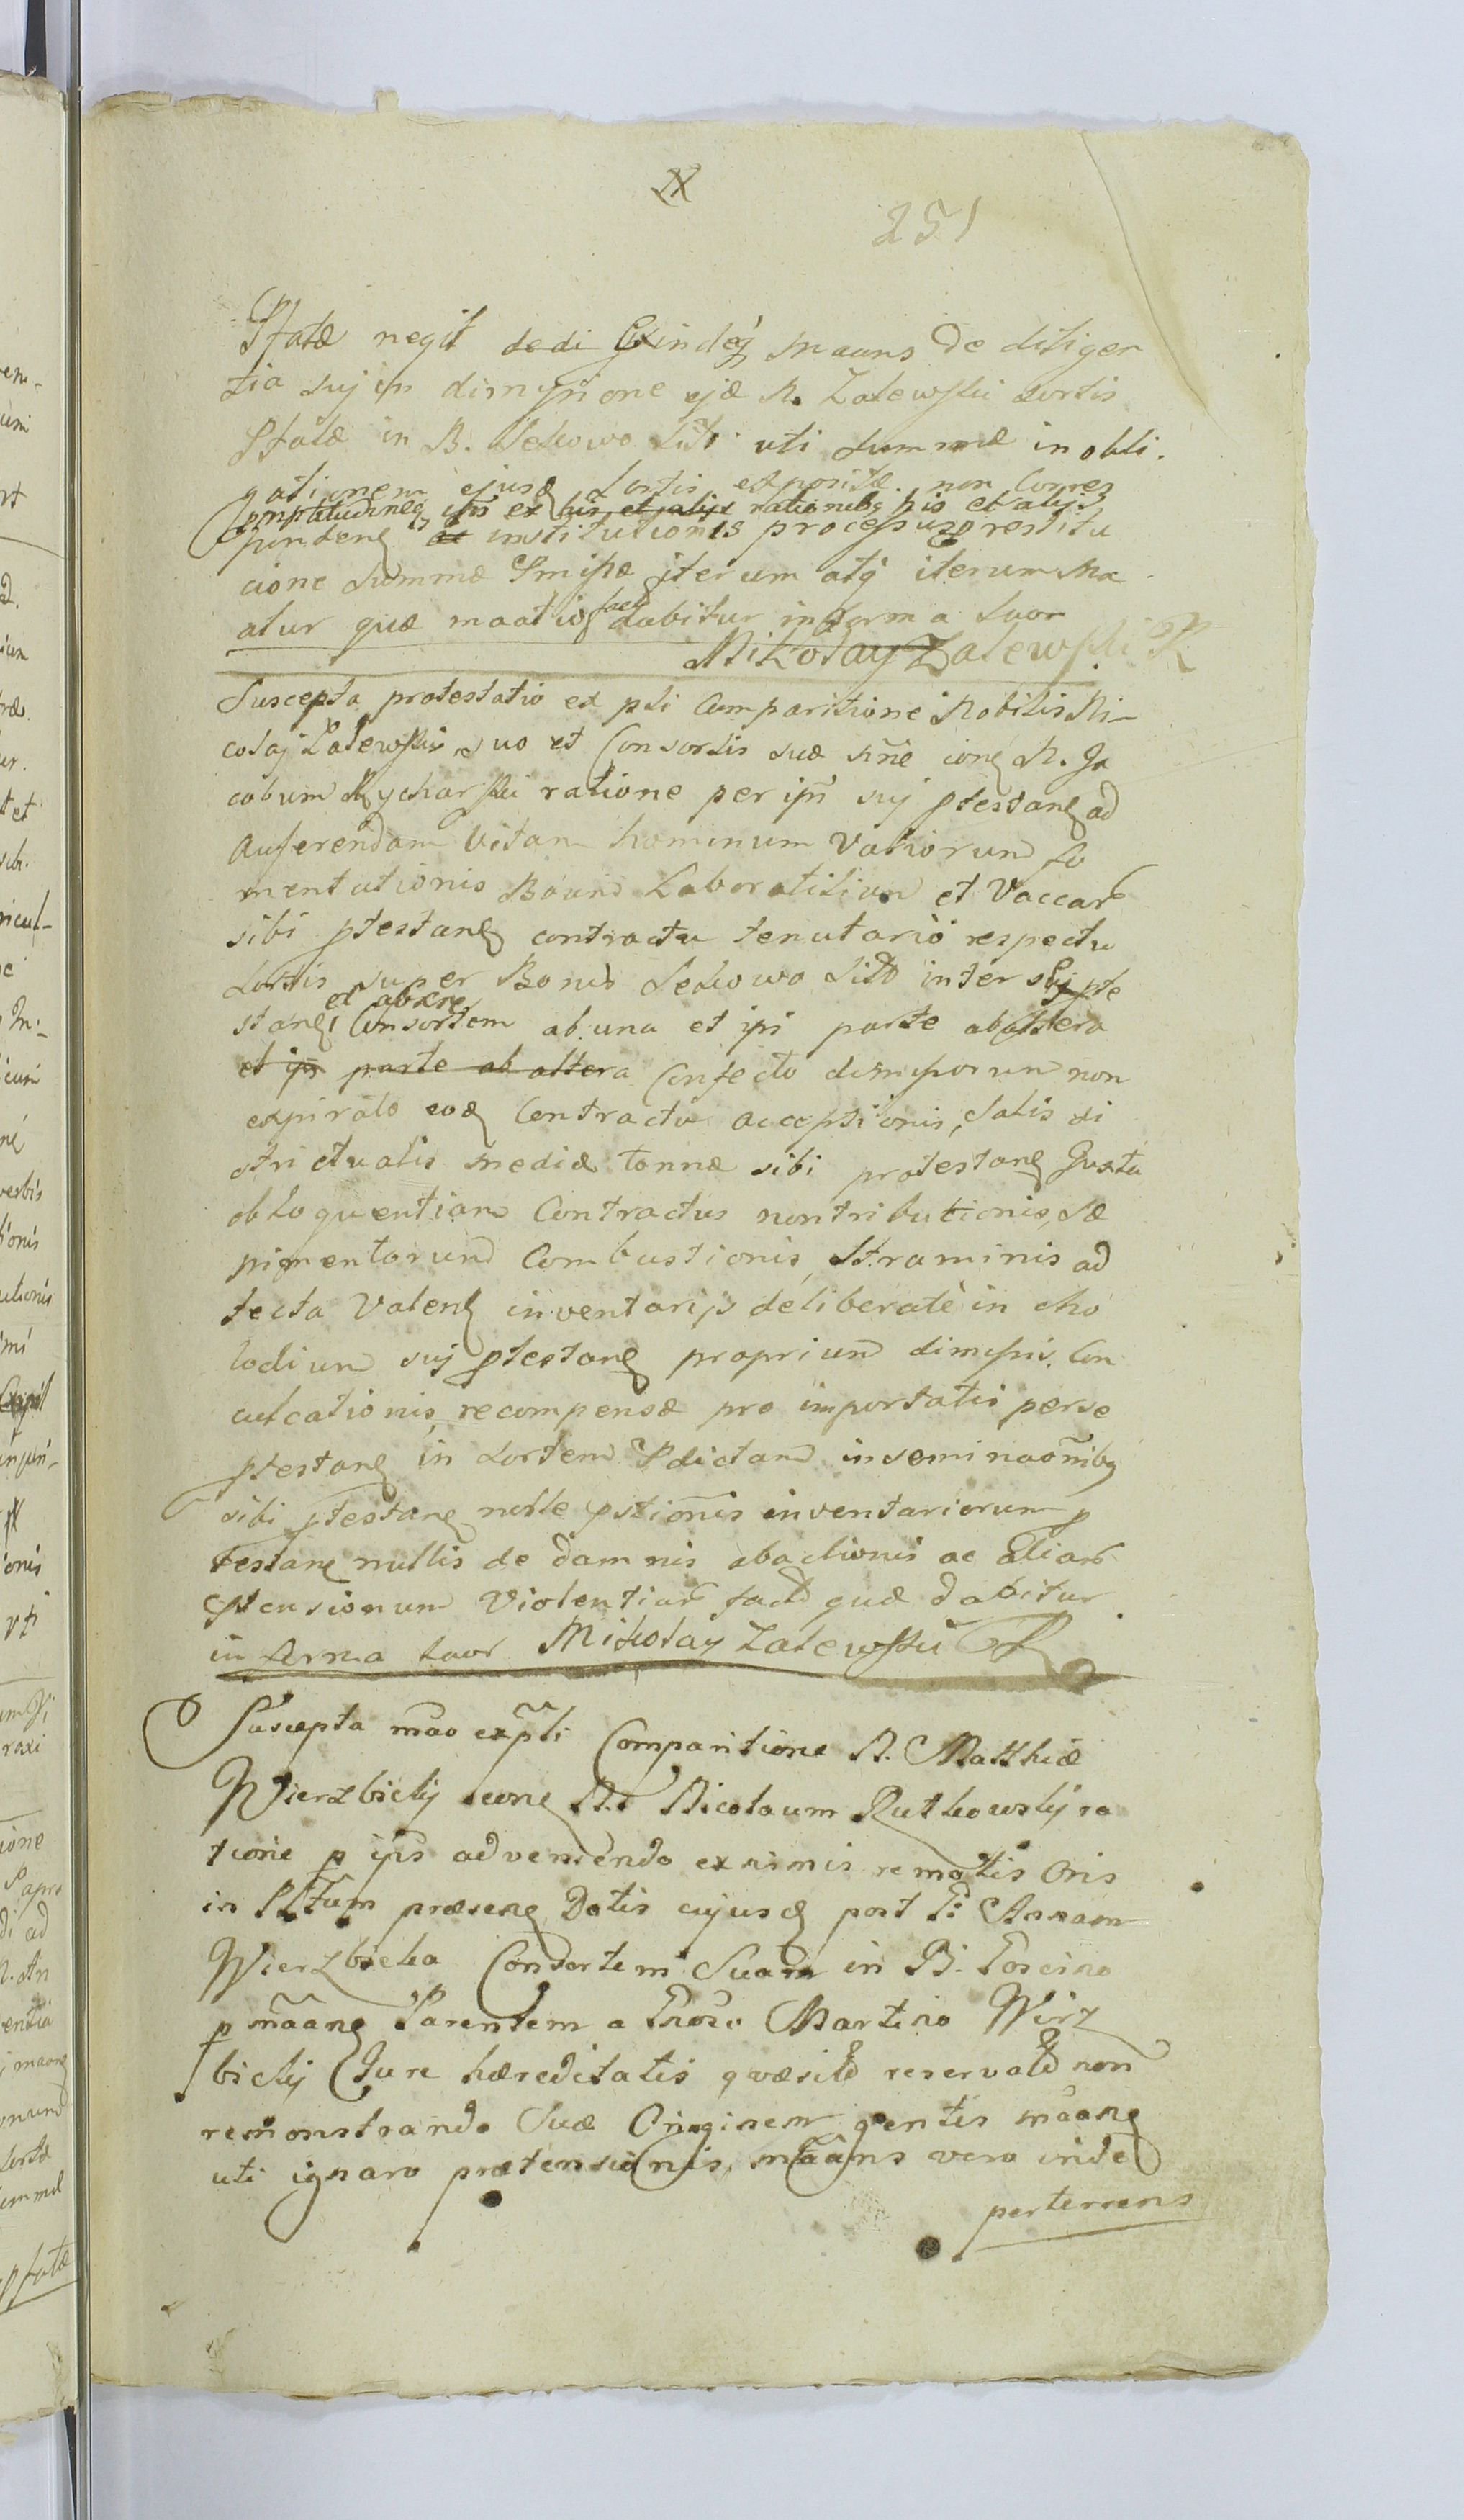 251
Pfatæ negit dedi Exindeq maans de diligen
tia suj in dimissione ejæ N. Zalewski sortis
Pfatæ in B. Sekowo Sitis uti summæ in obli.
gationem ejusd sortis expositæ non Corres
promptitudineq ips ex his et alijs rationibq his et alijs
pondenq ac institutionis processu pro restitu
cione summæ Pmissæ iterum atq iterum Ma
atur quæ maatio facta dabitur in forma suor
Mikołay Zalewski
Suscepta protestatio ex psti Comparitione Nobilis Ni-
colaj Zalewski suo et Consortis suæ nne coñe N. Ja
cobum Rycharski ratione per ipñ suj ptestanq ad
auferendam vitam hominum variorum fo
mentationis Boum Laboratitium et Vaccar
sibi ptestanq contractu tenutario respectu
sortis super Bonis Sekowo Sitto inter suj pte
stanq et Consortem ab una et ipi parte ab altera
et ips parte ab altera Confecto dimissorum non
expirato eoq Contractu acceptionis, Salis di
strictualis mediæ tonnæ sibi protestanq Juxta
obloquentiam Contractus nontributionis, Sæ
pimentorum Combustionis, Straminis ad
tecta Valenq inventarijs deliberatè in cho
lodium suj ptestanq proprium dimissis. Con
culcationis, recompensæ pro importatis per se
ptestanq in sortem Pdictam inseminaoñibq
sibi ptestanq nolle pstionis inventariorum p
testanq nullis de damnis abactionis ac aliar
Ptensionum Violentiar facta quæ dabitur
in forma suor Mikołay Zalewski
Suscepta mão ex psti Comparitione N. Mathiæ
Wierzbickij coñe N. Nicolaum Rutkowskij ra
tione p ips adveniendo ex nimis remotis Oris
in Pltum præsenq Dotis cujusq post P. Annam
Wierzbicka Consortem Suam in B. Poscino
p mãanq Parentem a Gnoso Martino Wirz
bickij Jure hæreditatis quæsitæ reservatæ non
remonstrando Suæ Originem gentis mãanq
uti ignaro prætensionis, mãans vero inde
perterrens